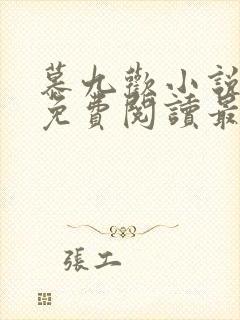 慕九歡小說
免費閱讀最
張工